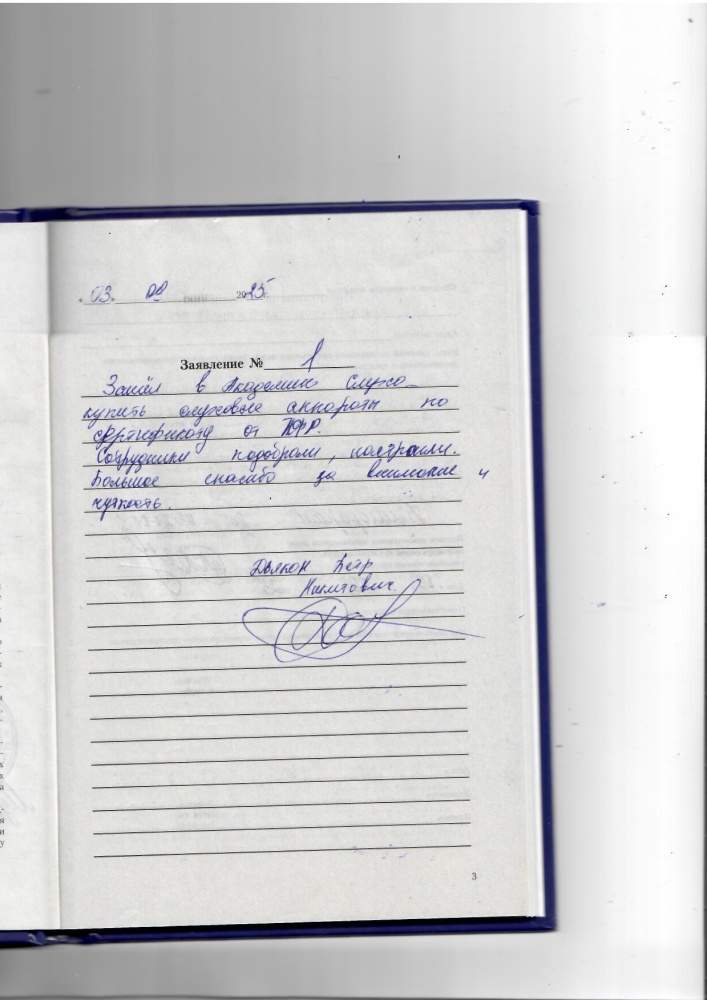 « 03 » 09 2025 г.
Заявление № 1
Зашёл в Академию Слуха
купить слуховые аппараты по
сертификату от
Сотрудники подобрали, настроили.
Большое спасибо за внимание и
чуткость.
Дьякон Петр
Никитович
3